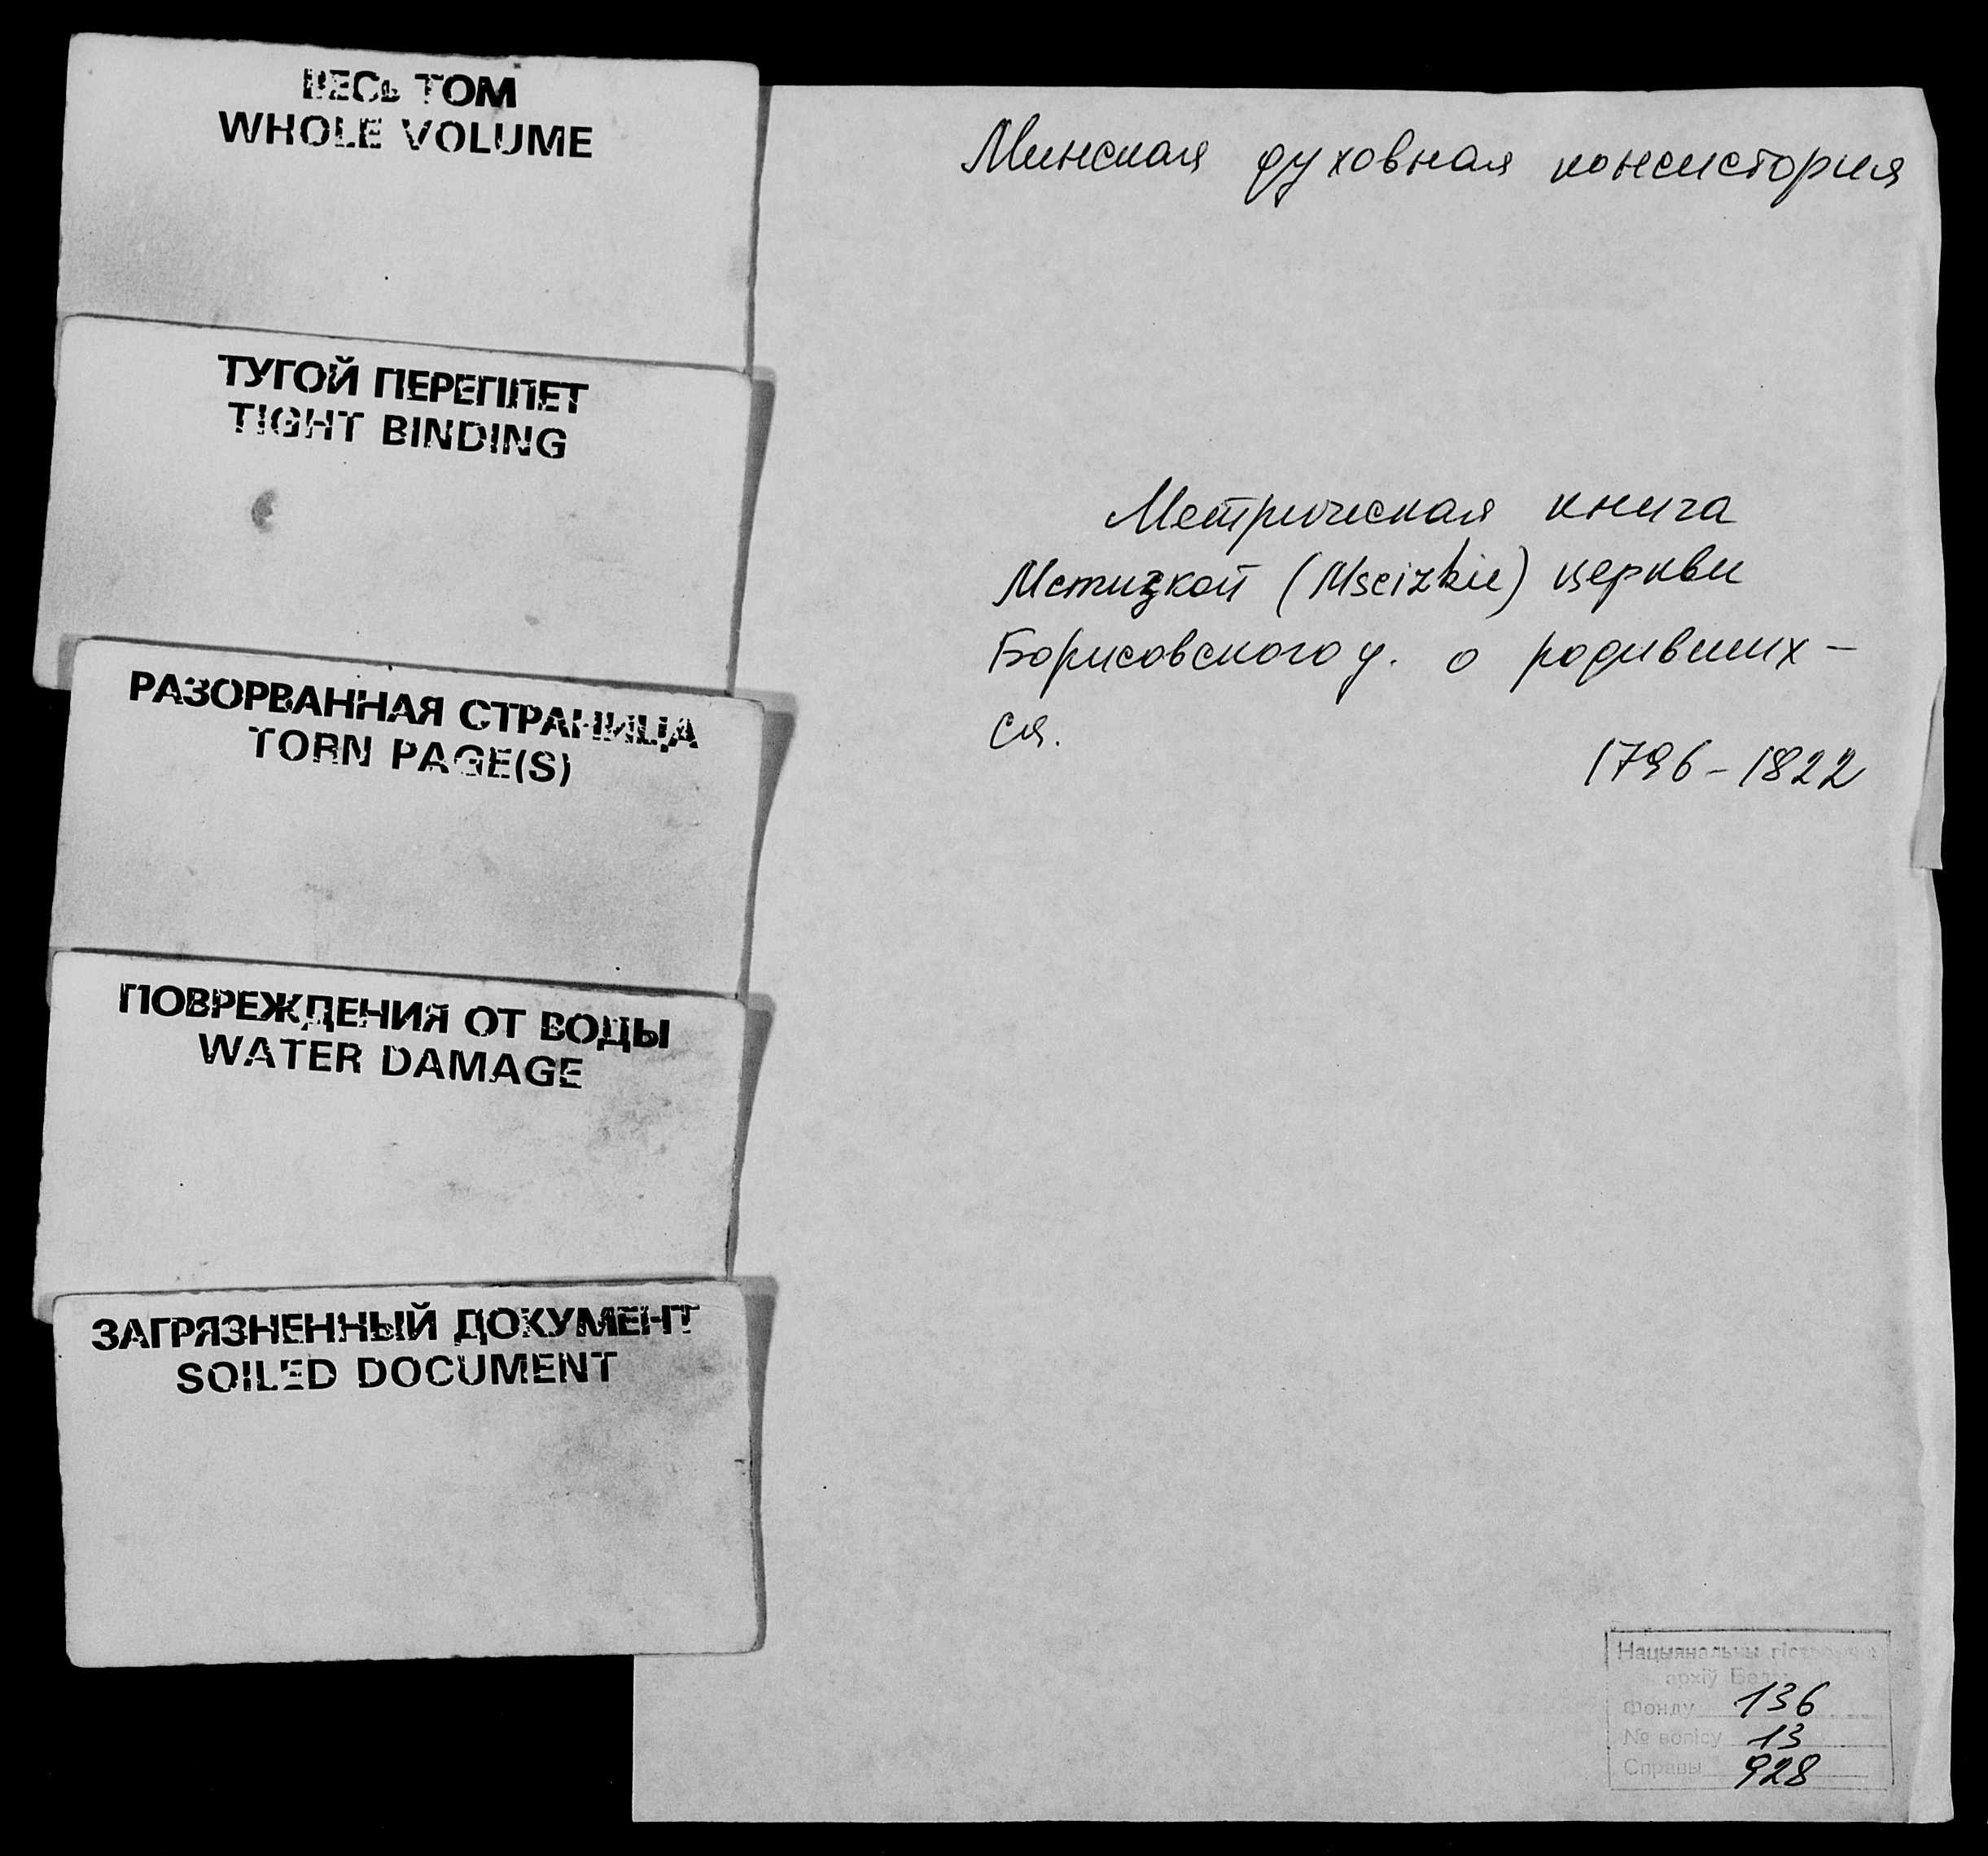 ВЕСЬ ТОМ
WHOLE VOLUME
ТУГОЙ ПЕРЕПЛЕТ
TIGHT BINDING
РАЗОРВАННАЯ СТРАНИЦА
TORN PAGE(S)
ПОВРЕЖДЕНИЯ ОТ ВОДЫ
WATER DAMAGE
ЗАГРЯЗНЕННЫЙ ДОКУМЕНТ
SOILED DOCUMENT
Минская духовная консистория
Метрическая книга
Мстизкой (Mscizkie) церкви
Борисовского у. о родивших-
ся.
1796-1822
Нацыянальны гістарычны
архіў
Фонду 136
№ вопісу 13
Справы 928